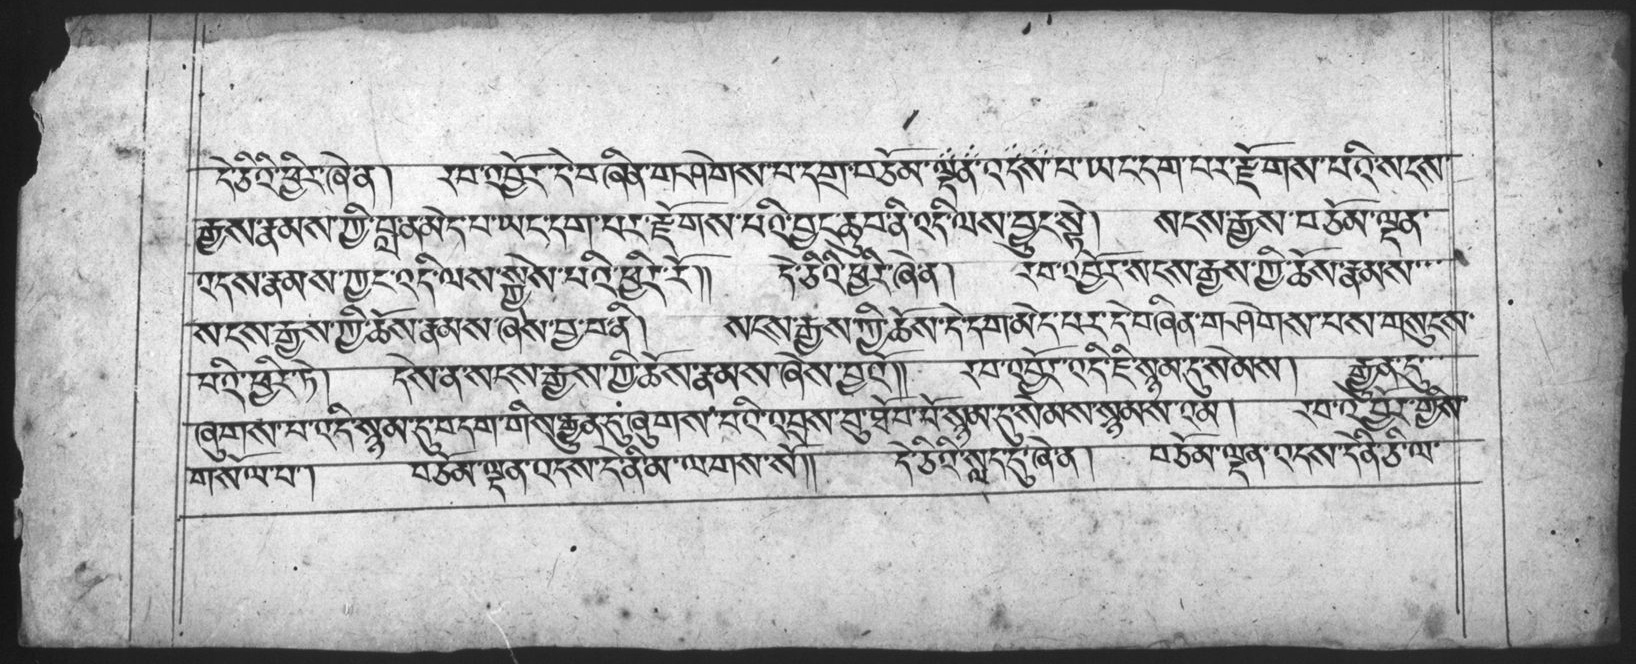 དེ་ཅིའི་ཕྱིར་ཞེ་ན། རབ་འབྱོར་དེ་བཞིན་གཤེགས་པ་དགྲ་བཅོམ་ལྡན་འདས་པ་ཡང་དག་པར་རྫོགས་པའི་སངས་
རྒྱས་རྣམས་ཀྱི་བླ་ན་མེད་པ་ཡང་དག་པར་རྫོགས་པའི་བྱང་ཆུབ་ནི་འདི་ལས་བྱུང་སྟེ། སངས་རྒྱས་བཅོམ་ལྡན་
འདས་རྣམས་ཀྱང་འདི་ལས་སྐྱེས་པའི་ཕྱིར་རོ།། དེ་ཅིའི་ཕྱིར་ཞེ་ན། རབ་འབྱོར་སངས་རྒྱས་ཀྱི་ཆོས་རྣམས་
སངས་རྒྱས་ཀྱི་ཆོས་རྣམས་ཞེས་བྱ་བ་ནི། སངས་རྒྱས་ཀྱི་ཆོས་དེ་དག་མེད་པར་དེ་བཞིན་གཤེགས་པས་གསུངས་
པའི་ཕྱིར་ཏེ། དེས་ན་སངས་རྒྱས་ཀྱི་ཆོས་རྣམས་ཞེས་བྱའོ།། རབ་འབྱོར་འདི་ཇི་སྙམ་དུ་སེམས། རྒྱུན་དུ་
ཞུགས་པ་འདི་སྙམ་དུ་བདག་གིས་རྒྱུན་དུ་ཞུགས་པའི་འབྲས་བུ་ཐོབ་པོ་སྙམ་དུ་སེམས་སྙམས་འམ། རབ་འབྱོར་གྱིས་
གསོལ་པ། བཅོམ་ལྡན་འདས་དེ་ནི་མ་ལགས་སོ།། དེ་ཅིའི་སླད་དུ་ཞེ་ན། བཅོམ་ལྡན་འདས་དེ་ནི་ཅི་ལ་